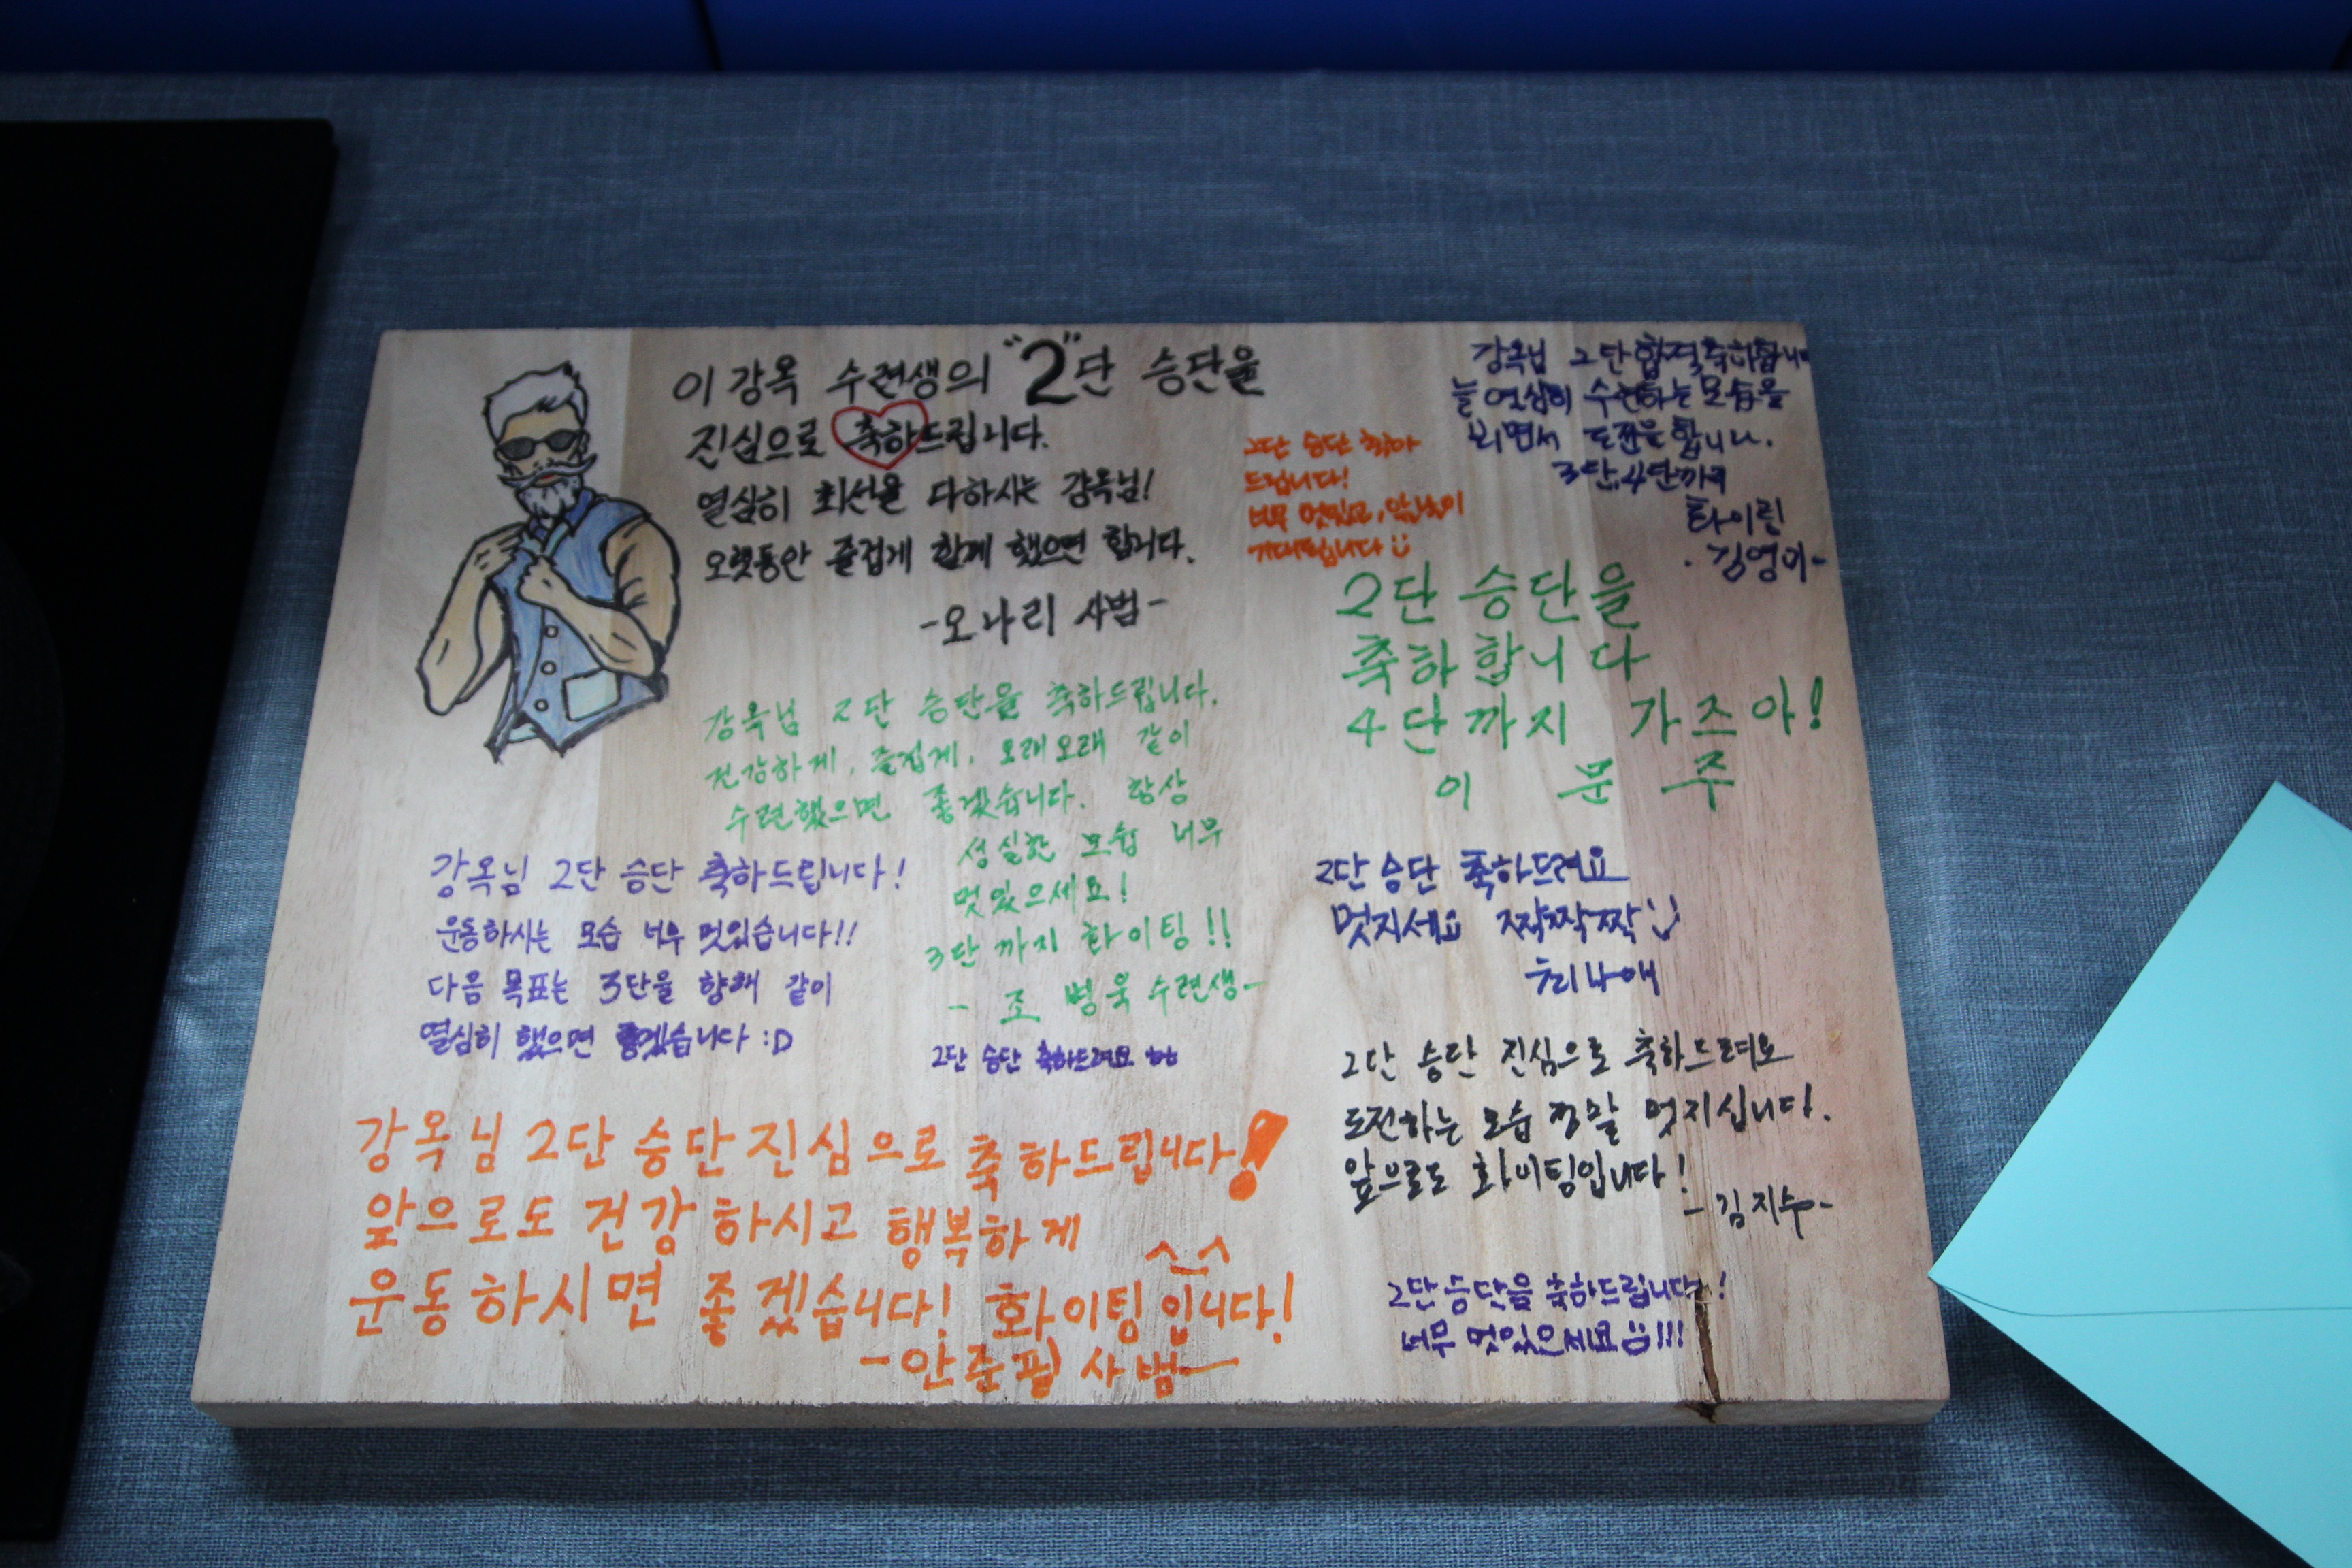 이강옥 수련생의 "2"단 승단을
진심으로 축하드립니다.
열심히 최선을 다하시는 강옥님!
오랫동안 즐겁게 함께 했으면 합니다.
-오나리 사범-
강옥님 2단 합격축하합니다
늘 열심히 수련하는 모습을
보면서 도전을 합니다.
3단, 4단까지
화이팅
김영미-
2단 승단 축하
드립니다!
너무 멋있고, 앞날이
기대됩니다
2단 승단을
축하합니다
4단까지 가즈아!
이 문 주
강옥님 2단 승단을 축하드립니다.
건강하게, 즐겁게, 오래오래 같이
수련했으면 좋겠습니다. 항상
성실한 모습 너무
멋있으세요!
3단 까지 화이팅!!
- 조 병욱 수련생-
강옥님 2단 승단 축하드립니다!
운동하시는 모습 너무 멋있습니다!!
다음 목표는 3단을 향해 같이
열심히 했으면 좋겠습니다 :D
2단 승단 축하드려요
2단 승단 축하드려요
멋지세요 짝짝짝
2단 승단 진심으로 축하드려요
도전하는 모습 정말 멋지십니다.
앞으로도 화이팅입니다!
-김지수-
강옥님 2단 승단 진심으로 축하드립니다!
앞으로도 건강하시고 행복하게
운동하시면 좋겠습니다! 화이팅입니다! ^_^
-안준필 사범-
2단승단을 축하드립니다!
너무 멋있으세요!!!